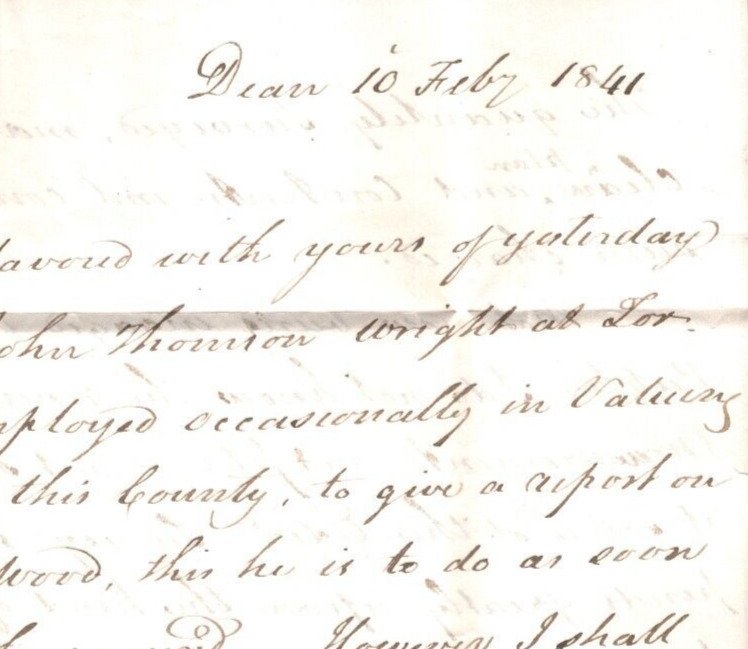 Dean 10 Feby 1841
avoured with yours of yesterday
ohn Thomson Wright at Tor
ployed occasionally in Valuing
this County, to give a report on
wood, this he is to do as soon
However I shall